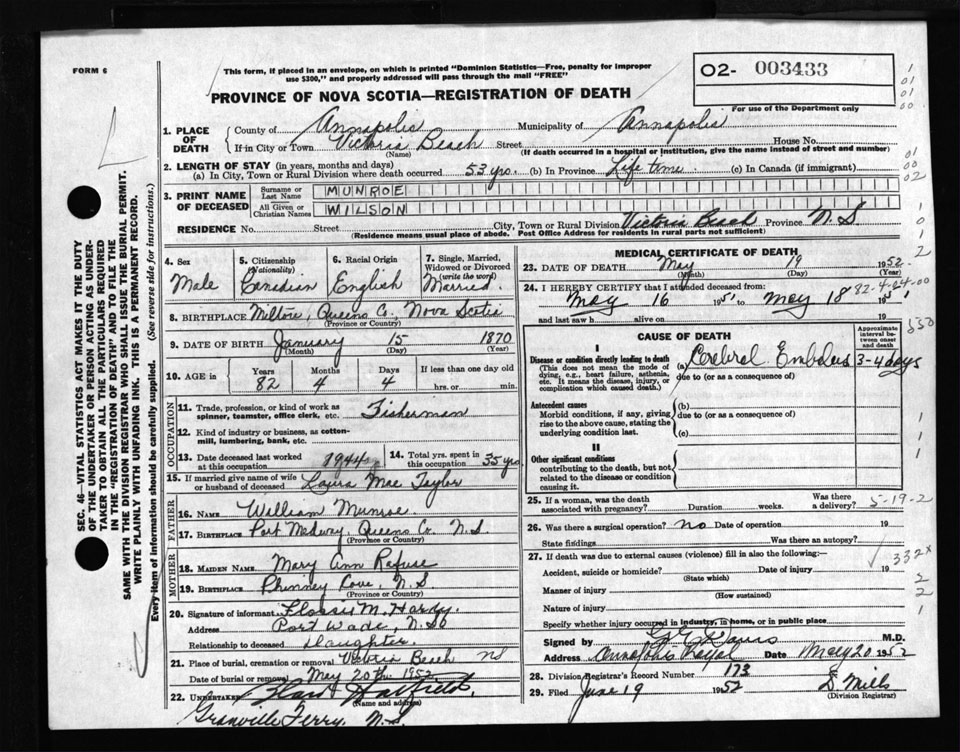 FORM 6
This form, if placed in an envelope, on which is printed "Dominion Statistics—Free, penalty for improper
use $300," and properly addressed will pass through the mail "FREE"
02- 003433
For use of the Department only
PROVINCE OF NOVA SCOTIA—REGISTRATION OF DEATH
1. PLACE OF DEATH
County of Annapolis Municipality of Annapolis
If in City or Town Victoria Beach Street House No.
(Name) (If death occurred in a hospital or institution, give the name instead of street and number)
2. LENGTH OF STAY (in years, months and days)
(a) In City, Town or Rural Division where death occurred 53 yrs. (b) In Province Life time (c) In Canada (if immigrant)
3. PRINT NAME OF DECEASED
Surname or Last Name MUNROE
All Given or Christian Names WILSON
RESIDENCE No. Street City, Town or Rural Division Victoria Beach Province N.S
(Residence means usual place of abode. Post Office Address for residents in rural parts not sufficient)
4. Sex
Male
5. Citizenship
(Nationality)
Canadian
6. Racial Origin
English
7. Single, Married,
Widowed or Divorced
(write the word)
Married
8. BIRTHPLACE Milton, Queens Co, Nova Scotia
(Province or Country)
9. DATE OF BIRTH January 15 1870
(Month) (Day) (Year)
10. AGE in Years Months Days If less than one day old
82 4 4 hrs. or min.
OCCUPATION
11. Trade, profession, or kind of work as
spinner, teamster, office clerk, etc. Fisherman
12. Kind of industry or business, as cotton-
mill, lumbering, bank, etc.
13. Date deceased last worked
at this occupation 1944
14. Total yrs. spent in
this occupation 35 yrs
15. If married give name of wife
or husband of deceased Laura Mae Taylor
FATHER
16. Name William Munroe
17. Birthplace Port Medway, Queens Co. N.S.
(Province or Country)
MOTHER
18. Maiden Name Mary Ann Rafuse
19. Birthplace Phinney Cove, N.S
(Province or Country)
20. Signature of informant Flossy M. Hardy.
Address Port Wade, N.S
Relationship to deceased Daughter.
21. Place of burial, cremation or removal Victoria Beach NS
Date of burial or removal May 20th 1952
22. Undertaker Hatfield,
(Name and address)
Granville Ferry, N.S.
MEDICAL CERTIFICATE OF DEATH
23. DATE OF DEATH May 19 1952
(Month) (Day) (Year)
24. I HEREBY CERTIFY that I attended deceased from:
May 16 1951 to May 18 1951
and last saw h alive on
82-4-04-00
CAUSE OF DEATH
Approximate
interval be-
tween onset
and death
I
Disease or condition directly leading to death
(This does not mean the mode of
dying, e.g., heart failure, asthenia,
etc. It means the disease, injury, or
complication which caused death.)
(a) Cerebral Embolus 3-4 days
due to (or as a consequence of)
Antecedent causes
Morbid conditions, if any, giving
rise to the above cause, stating the
underlying condition last.
(b)
due to (or as a consequence of)
(c)
II
Other significant conditions
contributing to the death, but not
related to the disease or condition
causing it.
25. If a woman, was the death
associated with pregnancy? Duration weeks. Was there
a delivery?
5-19-2
26. Was there a surgical operation? no Date of operation 19
State findings Was there an autopsy?
27. If death was due to external causes (violence) fill in also the following:—
Accident, suicide or homicide? Date of injury 19
(State which)
332x
Manner of injury
(How sustained)
Nature of injury
Specify whether injury occurred in industry, in home, or in public place
Signed by M.D.
Address Annapolis Royal Date May 20 1952
28. Division Registrar's Record Number 173
29. Filed June 19 1952 D Mills
(Division Registrar)
SEC. 46—VITAL STATISTICS ACT MAKES IT THE DUTY
OF THE UNDERTAKER OR PERSON ACTING AS UNDER-
TAKER TO OBTAIN ALL THE PARTICULARS REQUIRED
IN THE "REGISTRATION OF DEATH" AND TO FILE THE
SAME WITH THE DIVISION REGISTRAR WHO SHALL ISSUE THE BURIAL PERMIT.
WRITE PLAINLY WITH UNFADING INK. THIS IS A PERMANENT RECORD.
Every item of information should be carefully supplied. (See reverse side for instructions.)